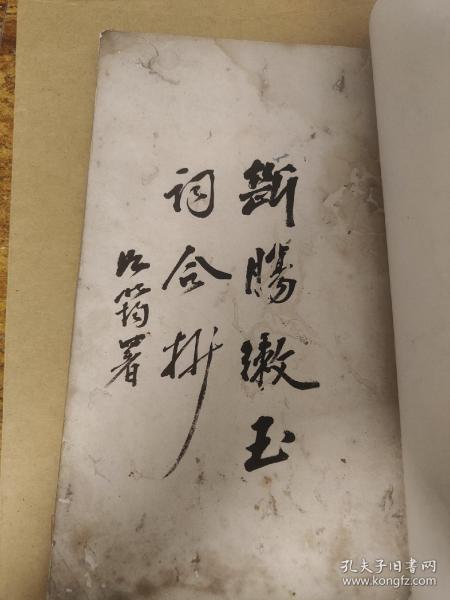 斷腸漱玉
詞合栞
署
孔夫子旧书网
www.kongfz.com